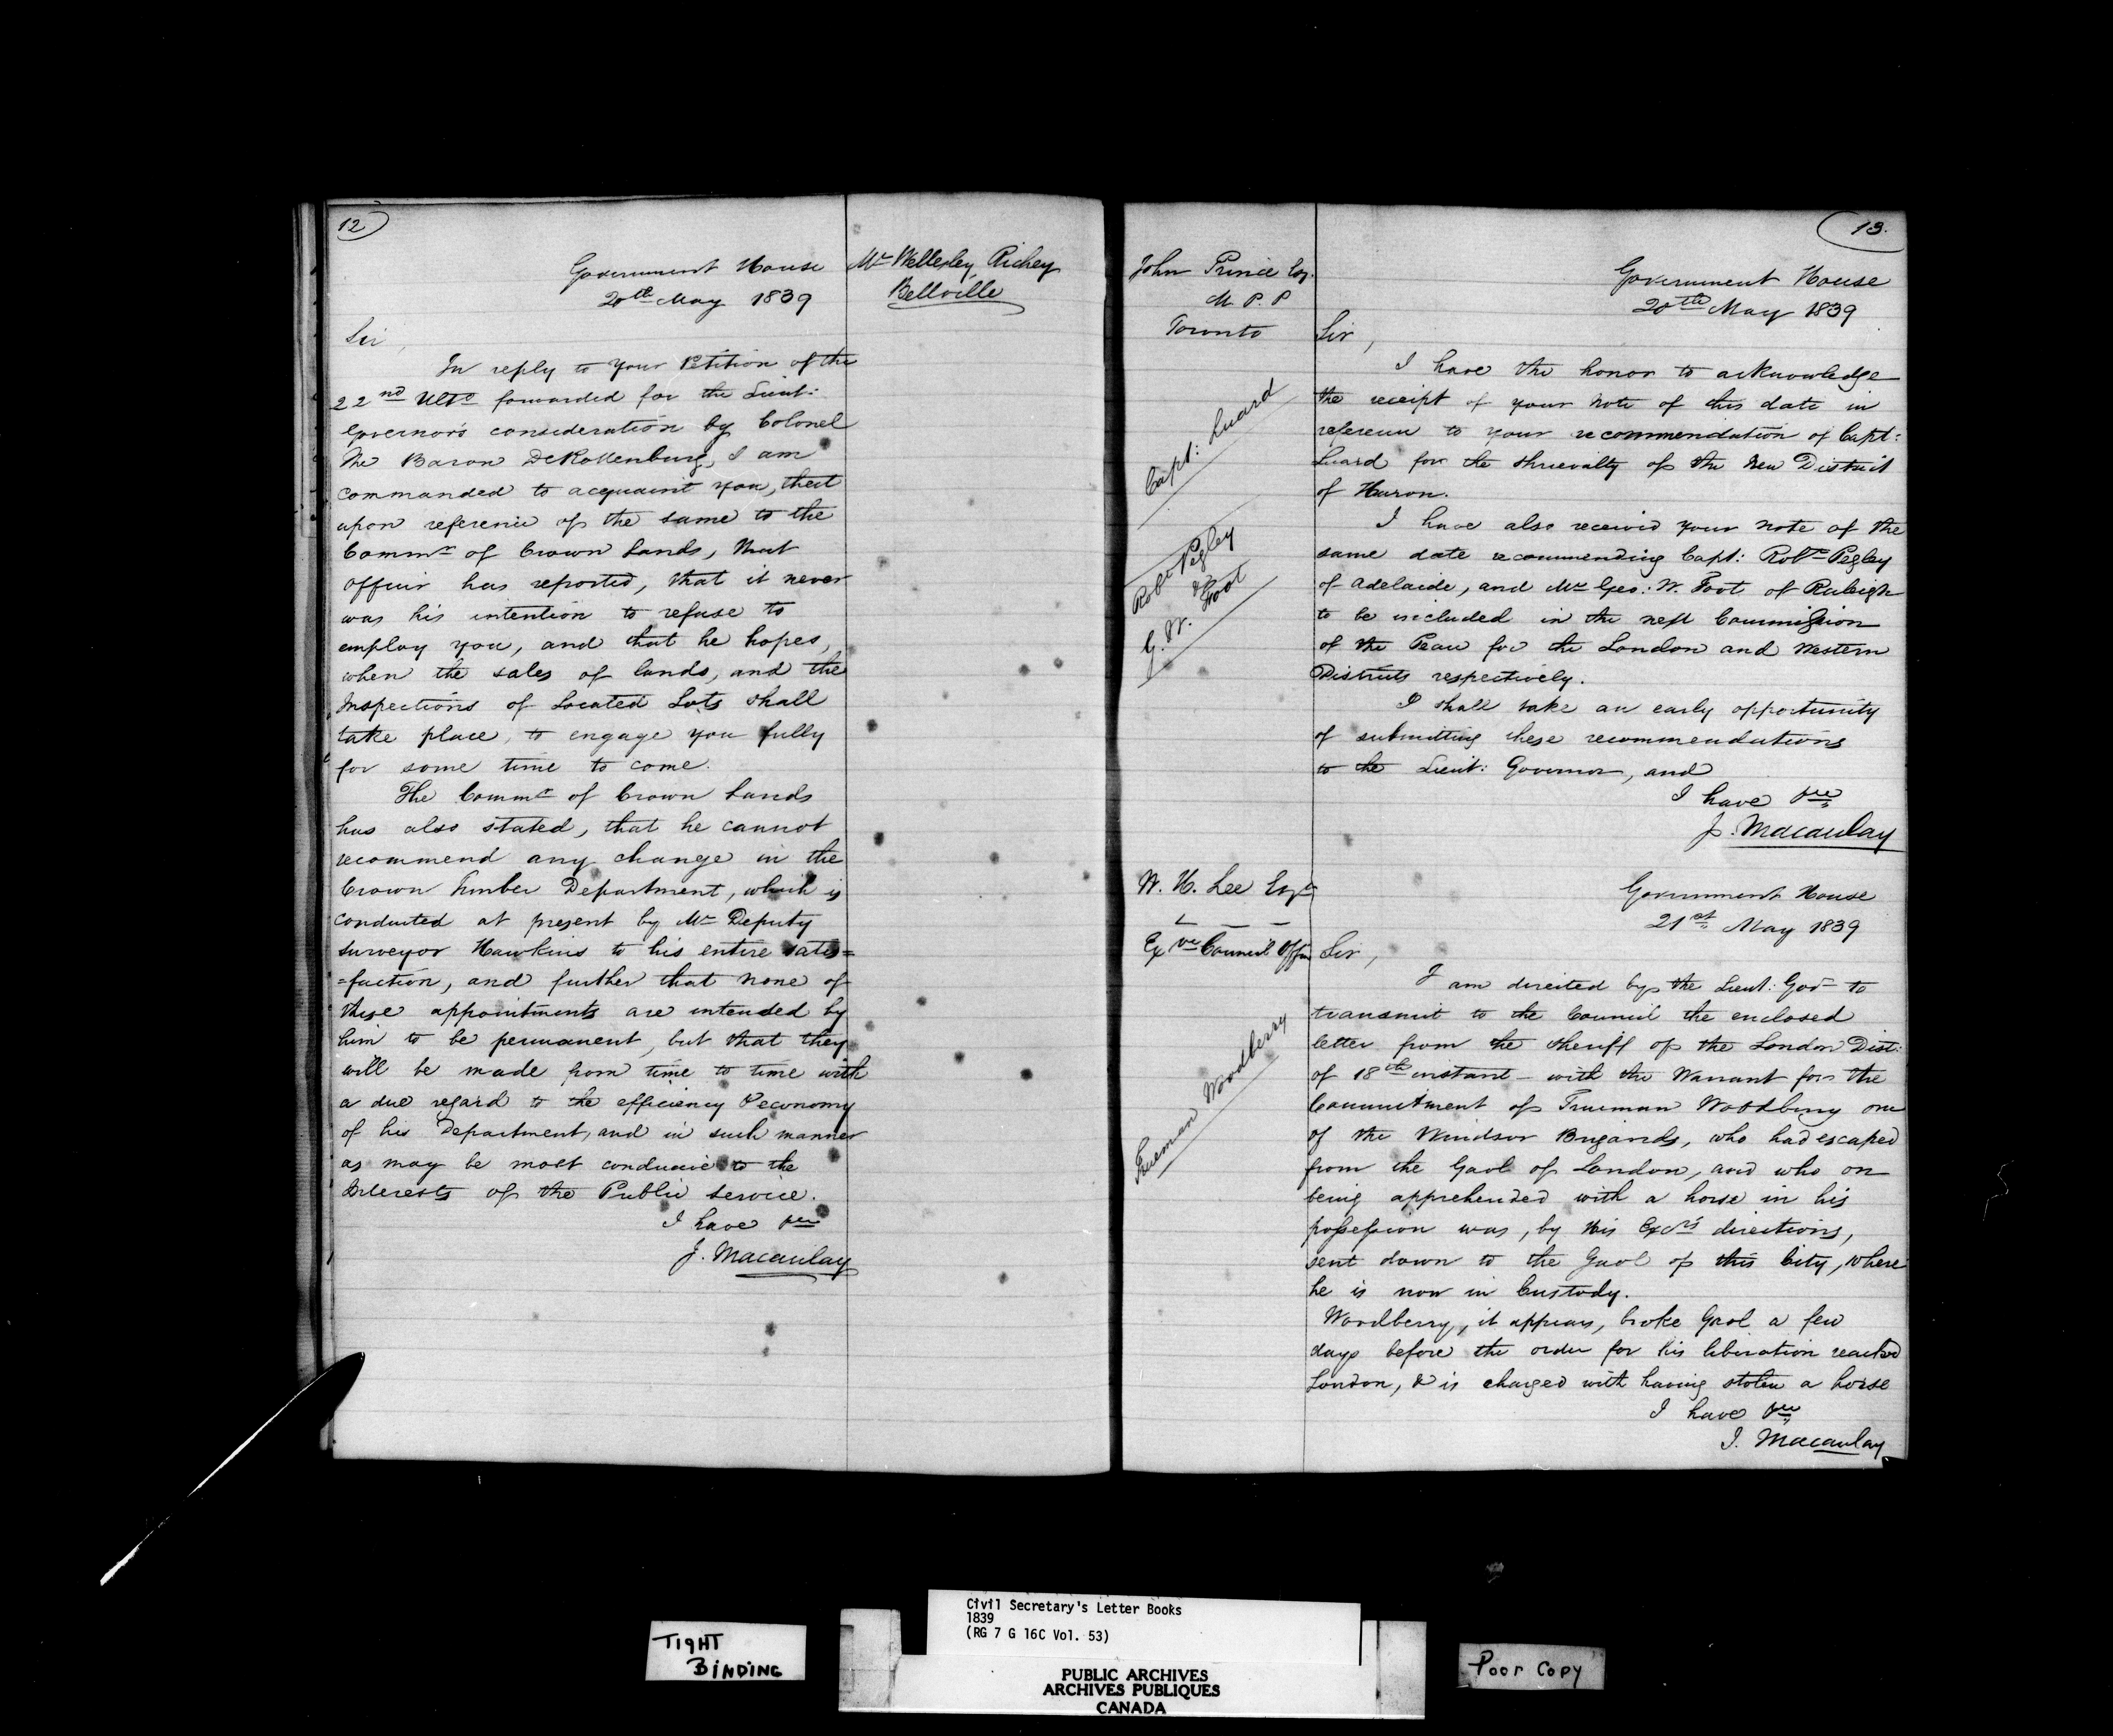 12
Government House
20th May 1839
Mr Wellesley Richey
Bellville
Sir,
In reply to your Petition of the
22nd Ulto forwarded for the Lieut:
Governor's consideration by Colonel
The Baron DeRottenburg, I am
commanded to acquaint you, that
upon reference of the same to the
Commr of Crown Lands, that
officer has reported, that it never
was his intention to refuse to
employ you, and that he hopes,
when the sales of lands, and the
Inspections of Located Lots shall
take place, to engage you fully
for some time to come.
The Commr of Crown Lands
has also stated, that he cannot
recommend any change in the
Crown Timber Department, which is
conducted at present by Mr Deputy
Surveyor Hawkins to his entire satis=
=faction, and further that none of
these appointments are intended by
him to be permanent, but that they
will be made from time to time with
a due regard to the efficiency & economy
of his Department, and in such manner
as may be most conducive to the
Interests of the Public Service.
I have &c
J. Macaulay
13.
John Prince Esq.
M. P. P
Toronto
Government House
20th May 1839
Sir,
I have the honor to acknowledge
the receipt of your note of this date in
reference to your recommendation of Capt:
Luard for the Shrievalty of the New District
of Huron.
Capt: Luard
I have also received your note of the
same date recommending Capt: Robt Pegley
of Adelaide, and Mr Geo: W. Foot of Raleigh
to be included in the next Commission
of the Peace for the London and Western
Districts respectively.
Robt Pegley
&
G. W. Foot
I shall take an early opportunity
of submitting these recommendations
to the Lieut: Governor, and
I have &c
J. Macaulay
W. H. Lee Esqr
Exve Council Office
Government House
21st May 1839
Sir,
I am directed by the Lieut: Govr to
transmit to the Council the enclosed
letter from the Sheriff of the London Dist:
of 18th instant – with the Warrant for the
Commitment of Trueman Woodberry one
of the Windsor Brigands, who had escaped
from the Gaol of London, and who on
being apprehended with a horse in his
possession was, by His Excy's directions,
sent down to the Gaol of this City, where
he is now in Custody.
Trueman Woodberry
Woodberry, it appears, broke Gaol a few
days before the order for his liberation reached
London, & is charged with having stolen a horse
I have &c
J. Macaulay
TIGHT
BINDING
Civil Secretary's Letter Books
1839
(RG 7 G 16C Vol. 53)
PUBLIC ARCHIVES
ARCHIVES PUBLIQUES
CANADA
Poor Copy